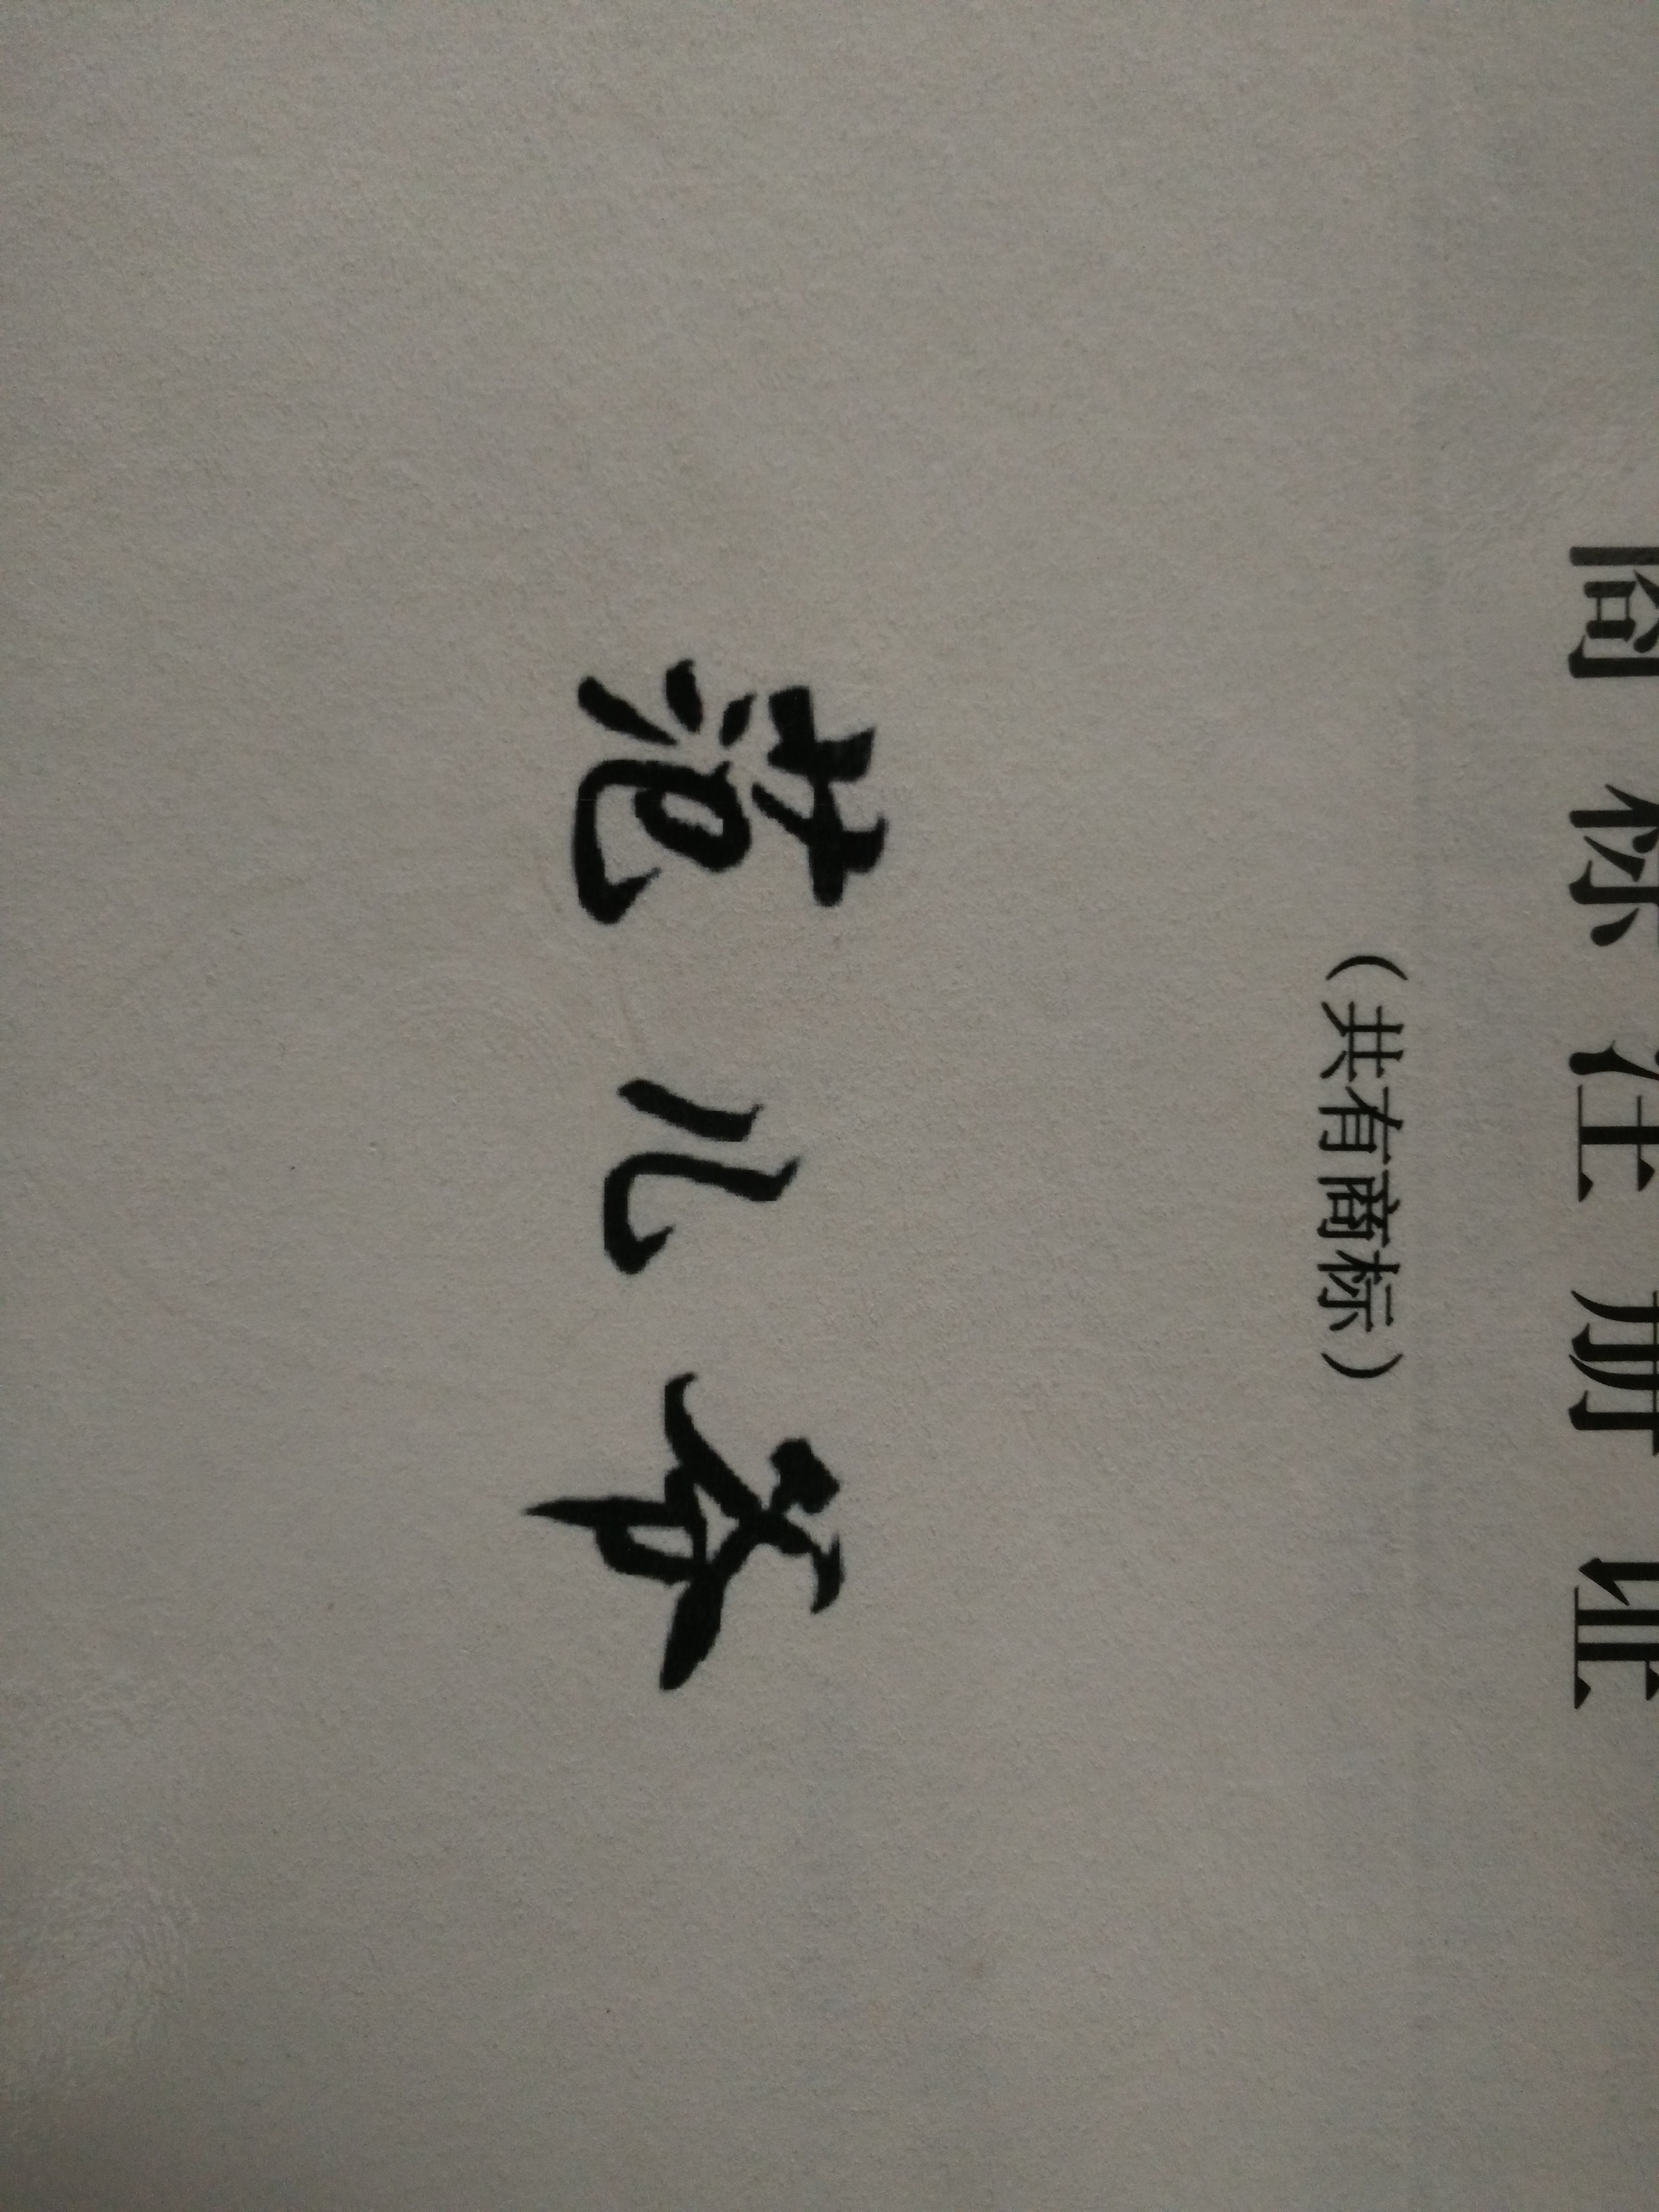 商标注册证
（共有商标）
范儿爷